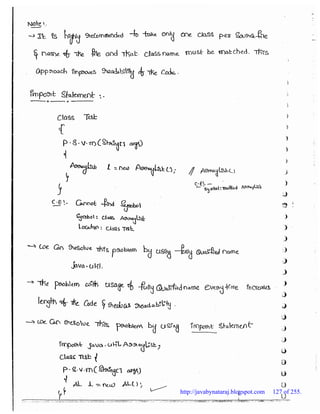 Note:.
→ It is highly recommended to take only one class per source file
& name of the file and that class name must be matched. This
approach improves readability of the code.
Import Statement :-
class Test
{
P.S.V.m(String[] args)
{
ArrayList l = new ArrayList();
}
}
C.E:- Cannot find symbol
symbol: class ArrayList
location: class Test
→ we can resolve this problem by using fully Qualified name
java.util.
→ The problem with usage of fully Qualified name every time increases
length of the code & reduces readability.
→ we can resolve this problem by using import statement
import java.util.ArrayList;
class Test {
P.S.V.m(String[] args)
{
AL l = new AL();
}}
http://javabynataraj.blogspot.com 127 of 255.